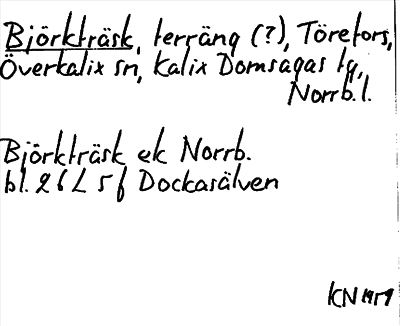 Björkträsk, terräng (?), Törefors,
Överkalix sn, Kalix Domsagas tg,
Norrb. l.
Björkträsk ek Norrb.
bl. 26 L 5 f Dockasälven
KN 1959